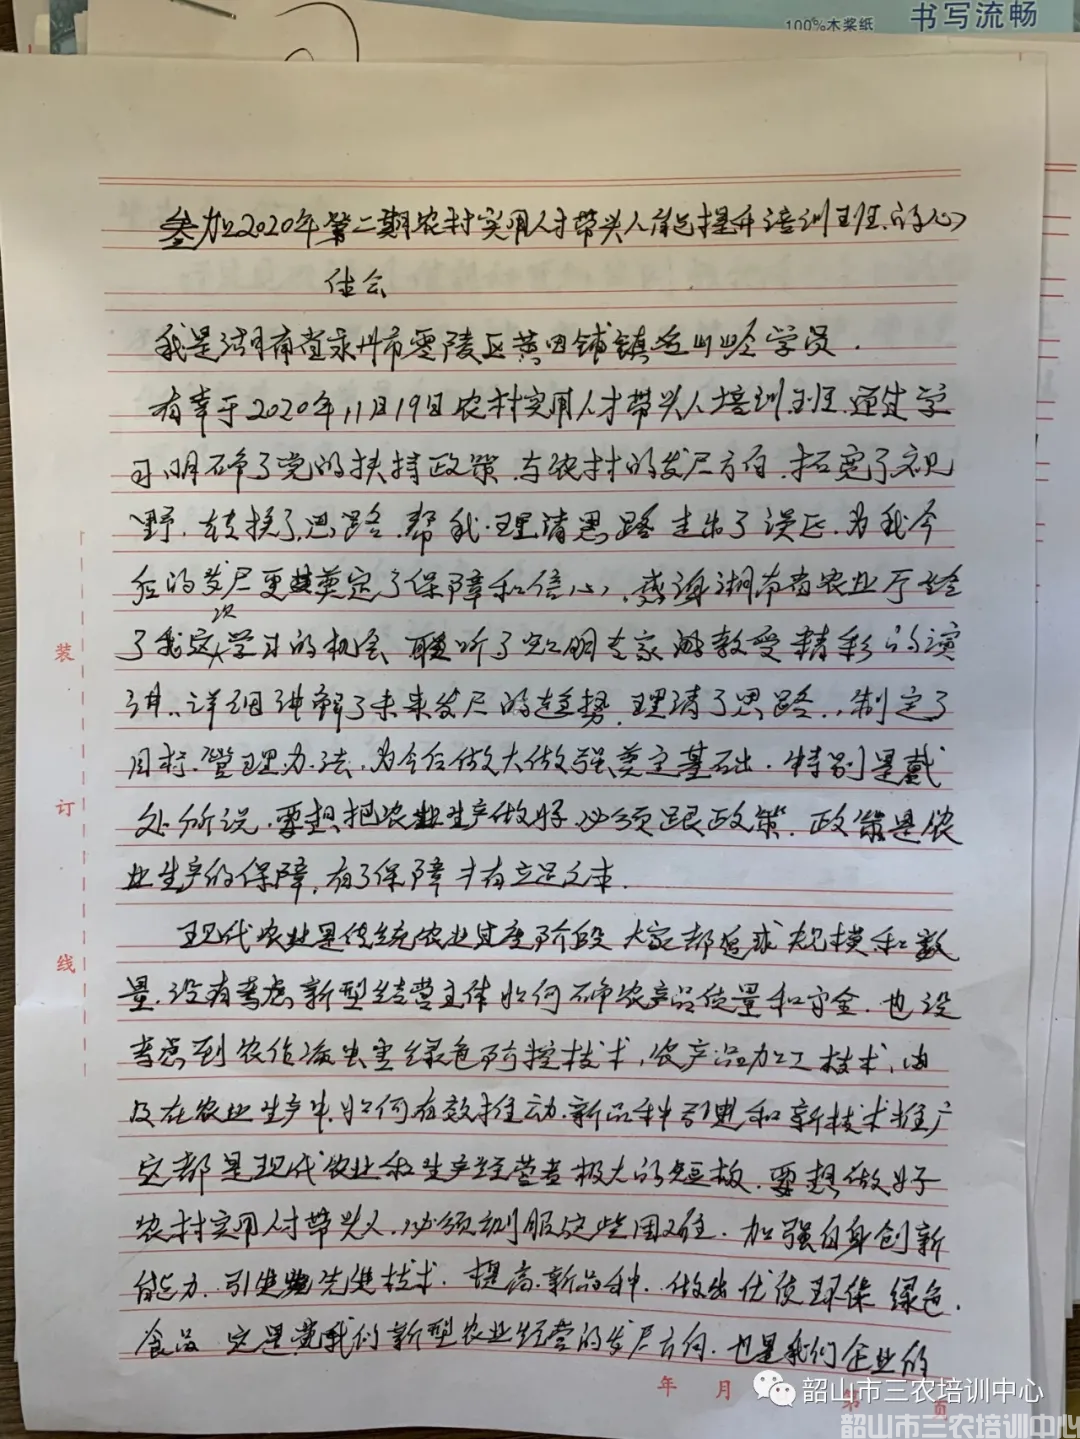 书写流畅
100%木桨纸
参加2020年第二期农村实用人才带头人能力提升培训班的心
体会
我是湖南省永州市零陵区黄田铺镇 学员.
有幸于2020年11月19日农村实用人才带头人培训班.通过学
习明确了党的扶持政策.与农村的发展方向.拓宽了视
野.转换了思路.帮我理清思路走出了误区.为我今
后的发展更奠定了保障和信心.感谢湖南省农业厅给
了我这次学习的机会 聆听了 专家 教受精彩的演
讲.详细讲解了未来发展的趋势.理清了思路.制定了
目标.管理办法.为今后做大做强奠定基础.特别是戴
处所说.要想把农业生产做好.必须跟政策.政策是农
业生产的保障,有了保障才有立足之本.
现代农业是传统农业过度阶段 大家都追求规模和数
量.没有考虑新型经营主体如何确农产品质量和安全.也没
考虑到农作病虫害绿色防控技术,农产品加工技术,以
及在农业生产中.如何有效推动.新品种引进和新技术推广
它都是现代农业和生产经营者极大的短板.要想做好
农村实用人才带头人.必须刻服这些困难.加强自身创新
能力.引进先进技术.提高新品种.做出优质环保 绿色.
食品 它是我们新型农业经营的发展方向.也是我们企业的
装
订
线
年 月
第 页
韶山市三农培训中心
韶山市三农培训中心